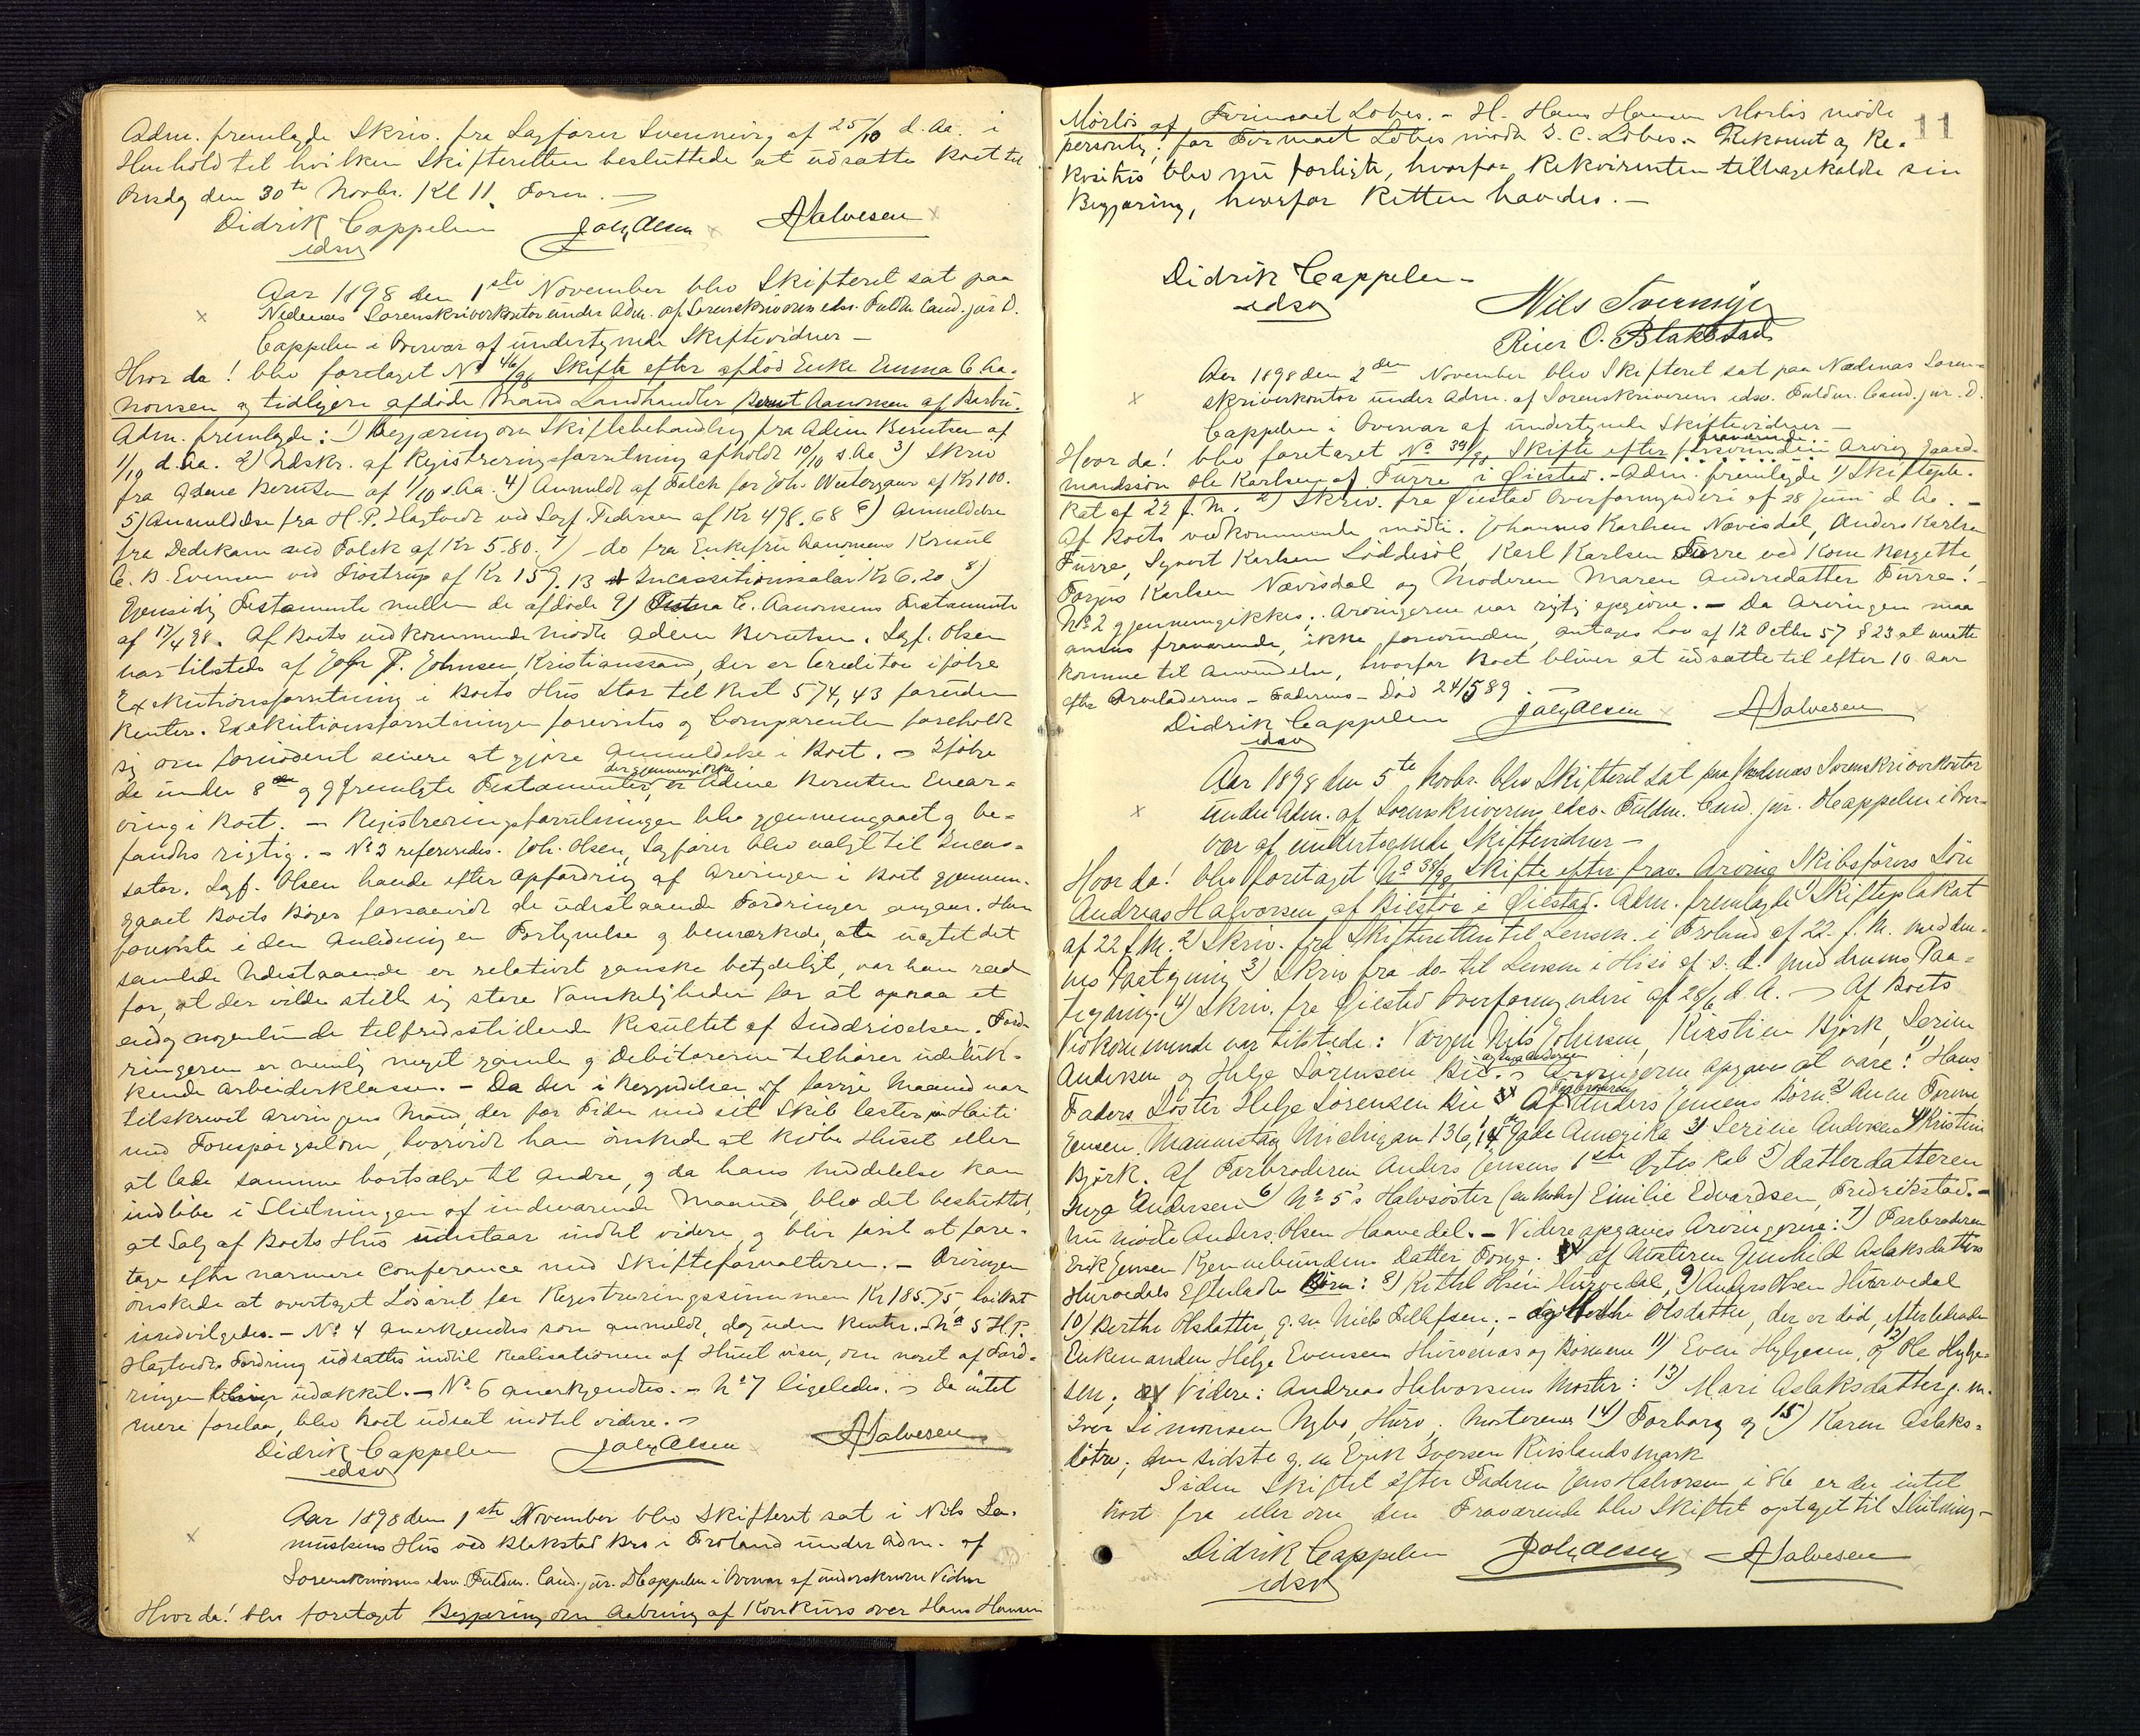 Adm. fremlagde Skriv. fra Sagfører Svenning af 25/10 d. Aa. i
Henhold til hvilken Skifteretten besluttede at udsætte Boet til
Onsdag den 30te Novbr. Kl 11 Form. —
Didrik Cappelen Joh. Olsen A Halvesen
edsv
Aar 1898 den 1ste November blev Skifteret sat paa
Nedenæs Sorenskriverkontor under Adm. af Sorenskriverens edsv. Fuldm. Cand. jur D.
Cappelen i Overvær af undertegnede Skiftevidner —
Hvor da! blev foretaget No 46/98 Skifte efter afdød Enke Emma C Aa-
nonsen og tidligere afdøde Mand Landhandler Bernt Aanonsen af Barbu.
Adm. fremlagde: 1) Begjæring om Skiftebehandling fra Adine Berntsen af
1/10 d. Aa. 2) Udskr. af Registreringsforretning afholdt 10/10 s. Aa 3) Skriv
fra Adine Berntsen af 1/10 s. Aa. 4) Anmeldt af Falck for Joh. Wintergaar af Kr 100.
5) Anmeldelse fra H. P. Hagtvedt ved Sagf. Pedersen af Kr 498.68 6) Anmeldelse
fra Dedekam ved Falck af Kr 5.80. 7) - do fra Enkefru Aanonsens
C. B. Evensen ved Fiostrup af Kr 159.13 Incassationssalær Kr 6.20 8)
Gjensidig Testamente mellem de afdøde 9) C. Aanonsens Testamente
af 17/4 98. Af Boets vedkommende mødte Adine Berntsen. Sagf. Olsen
var tilstede af Johs P. Johnsen, Kristianssand, der er Creditor ifølge
Exekutionsforretning i Boets Hus stor til Rest 574,43 foruden
Renter. Exekutionsforretningen forevistes og Comparenten foreholdt
sig om fornødent senere at gjøre Anmeldelse i Boet. — Ifølge
de under 8 og 9 fremlagte Testamenter, der gjennemgikkes er Adine Berntsen Enear-
ving i Boet. — Registreringsforretningen blev gjennemgaaet og be-
fandtes rigtig. — No 3 refereredes. Joh. Olsen, Sagfører blev valgt til Incas-
sator. Sagf. Olsen havde efter Opfordring af Arvingen i Boet gjennem-
gaaet Boets Bøger forsaavidt de udestaaende Fordringer angaar. Han
foreviste i den Anledning en Fortegnelse og bemærkede, at uagtet det
samlede Udestaaende er relativt ganske betydeligt, var han ræd
for, at der vilde stille sig store Vanskeligheder for at opnaa et
endog nogenlunde tilfredsstillende Resultat af Inddrivelsen. Ford-
ringerne er nemlig meget gamle og Debitorerne tilhører udeluk-
kende Arbeiderklassen. — Da der i Begyndelsen af forrige Maaned var
tilskrevet Arvingens Mand, der for Tiden med sit Skib laster paa Haiti
med Forespørgsel om, hvorvidt han ønskede at kjøbe Huset eller
at lade samme bortsælge til andre, og da hans Meddelelse kan
indløbe i Slutningen af indeværende Maaned, blev det besluttet,
at Salg af Boets Hus udestaar indtil videre og blir først at fore-
tage efter nærmere Conferance med Skifteforvalteren. — Arvingen
ønskede at overtaget Løsøret for Registreringssummen Kr 185.75, hvilket
indvilgedes. — No 4 anerkjendes som anmeldt, dog uden Renter. — No 5 H. P.
Hagtvedts Fordring udsættes indtil Realisationen af Huset viser, om noget af Ford-
ringen bliver udækket. — No 6 anerkjendtes. — No 7 ligeledes. — Da intet
mere forelaa, blev Boet udsat indtil videre. —
Didrik Cappelen Joh. Olsen A Halvesen
edsv
Aar 1898 den 1ste November blev Skifteret sat i Nils
Hus ved Blakstad Bro i Froland under Adm. af
Sorenskriverens edsv. Fuldm. Cand. jur. D Cappelen i Overvær af underskrevne Vidner
Hvor da! blev foretaget Begjæring om Aabning af Konkurs over Hans Hansen
11
Mørlös af Firmaet Löbes. — H. Hans Hansen Mørlös mødte
personlig; for Firmaet Löbes mødte I. C. Löbes. — Rekvirent og Re-
kvisitus blev nu forligte, hvorfor Rekvirenten tilbagekaldte sin
Begjæring, hvorfor Retten hævdes. —
Didrik Cappelen —
edsv
Nils Svenninge
Reier O. Blakstad
Aar 1898 den 2den November blev Skifteret sat paa Nedenæs Soren-
skriverkontor under Adm. af Sorenskriverens edsv. Fuldm. Cand. jur. D.
Cappelen i Overvær af undertegnede Skiftevidner —
Hvor da! blev foretaget No 39/98 Skifte efter forsvunden fraværende Arving Gaard-
mandssøn Ole Karlsen af Furre i Øiestad. — Adm. fremlagde 1) Skiftepla-
kat af 22 f. M. 2) Skriv. fra Øiestad Overformynderi af 28 Juni d. Aa. —
Af Boets vedkommende mødte: Johannes Karlsen Nævisdal, Anders Karlsen
Furre, Syvert Karlsen Löddesöl, Karl Karlsen Furre ved Kone Bergette,
Torjus Karlsen Nævisdal og Moderen Maren Andersdatter Furre! —
No 2 gjennemgikkes; Arvingerne var rigtig opgivne. — Da Arvingen maa
ansees fraværende, ikke forsvunden, antages Lov af 12 Octbr 57 § 23 at maatte
komme til Anvendelse, hvorfor Boet bliver at udsætte til efter 10 Aar
efter Arveladerens — Faderens — Død 24/5 89. —
Didrik Cappelen Joh. Olsen A Halvesen
edsv
Aar 1898 den 5te Novbr. blev Skifteret sat paa Nedenæs Sorenskriverkontor
under Adm. af Sorenskriverens edsv. Fuldm. Cand. jur. D Cappelen i Over-
vær af undertegnede Skiftevidner —
Hvor da! blev foretaget No 38/98 Skifte efter frav. Arving Skibsförers Sön
Andreas Halvorsen af Bilstöe i Øiestad. Adm. fremlagde 1) Skifteplakat
af 22 f. M. 2) Skriv. fra Skifteretten til Lensm. i Froland af 22 f. M. med den-
nes Paategning 3) Skriv fra do til Lensm i Hisö af s. d. med dennes Paa-
tegning. 4) Skriv. fra Øiestad Overformynderi af 28/6 d. A. — Af Boets
Vedkommende var tilstede: Værgen Nils Johnsen, Kirstine Björk, Serine
Andersen og Helje Sörensen Bie. Arvingerne opgaves at være: 1) Hans
Faders Söster Helje Sörensen Bie Af Farbroderen Anders Jensens Börn: 2) Anne Torine
Jensen, Mannistag Michigan 136, 14 Gade Amerika 3) Serine Andersen 4) Kristine
Björk. Af Farbroderen Anders Jensens 1ste Ægteskab 5) datterdatteren
Inga Andersen 6) No 5's Halvsöster (en Moder) Emilie Edvardsen, Fredrikstad. —
Nu mödte Anders Olsen Haavedal. — Videre opgaves Arvingerne: 7) Farbroderen
Erik Jensen Rjennebundens Datter Torge. af Mosteren Gunhild Aslaksdatters
Hurvedals Efterladte Börn: 8) Kittil Olsen Hurvedal, 9) Anders Olsen Hurvedal
10) Berthe Olsdatter, g. m Niels Tellefsen; — Olsdatter, der er död, efterladende
Enkemanden Helge Evensen Hurvenæs og Börnene 11) Even Hylgesen, 12) og Ole Hylge-
sen; Videre: Andreas Halvorsens Moster: 13) Mari Aslaksdatter g. m.
Iver Simonsen Nybo, Hurv; Mosterene 14) Torborg og 15) Karen Aslaks-
døtre; den sidste g. m Erik Iversen Rislandsmark
Siden Skiftet efter Faderen Jens Halvorsen i 86 er der intet
hørt fra eller om den Fraværende blev Skiftet optaget til Slutning —
Didrik Cappelen Joh. Olsen A Halvesen
edsv